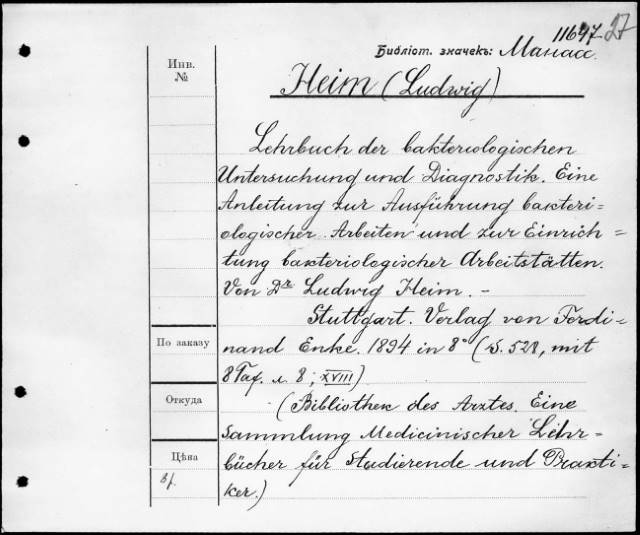 11647
27
Библіот. значекъ: Манасс.
Инв. №
Heim (Ludwig)
Lehrbuch der bakteriologischen
Untersuchung und Diagnostik. Eine
Anleitung zur Ausführung bakteri=
ologischer Arbeiten und zur Einrich=
tung bakteriologischer Arbeitstätten.
Von Dr Ludwig Heim. –
Stuttgart. Verlag von Ferdi=
nand Enke. 1894 in 8° (S. 528, mit
8 Taf. u. 8, XVIII)
(Bibliothek des Arztes. Eine
Sammlung Medicinischer Lehr=
bücher für Studierende und Prakti=
ker.)
По заказу
Откуда
Цѣва